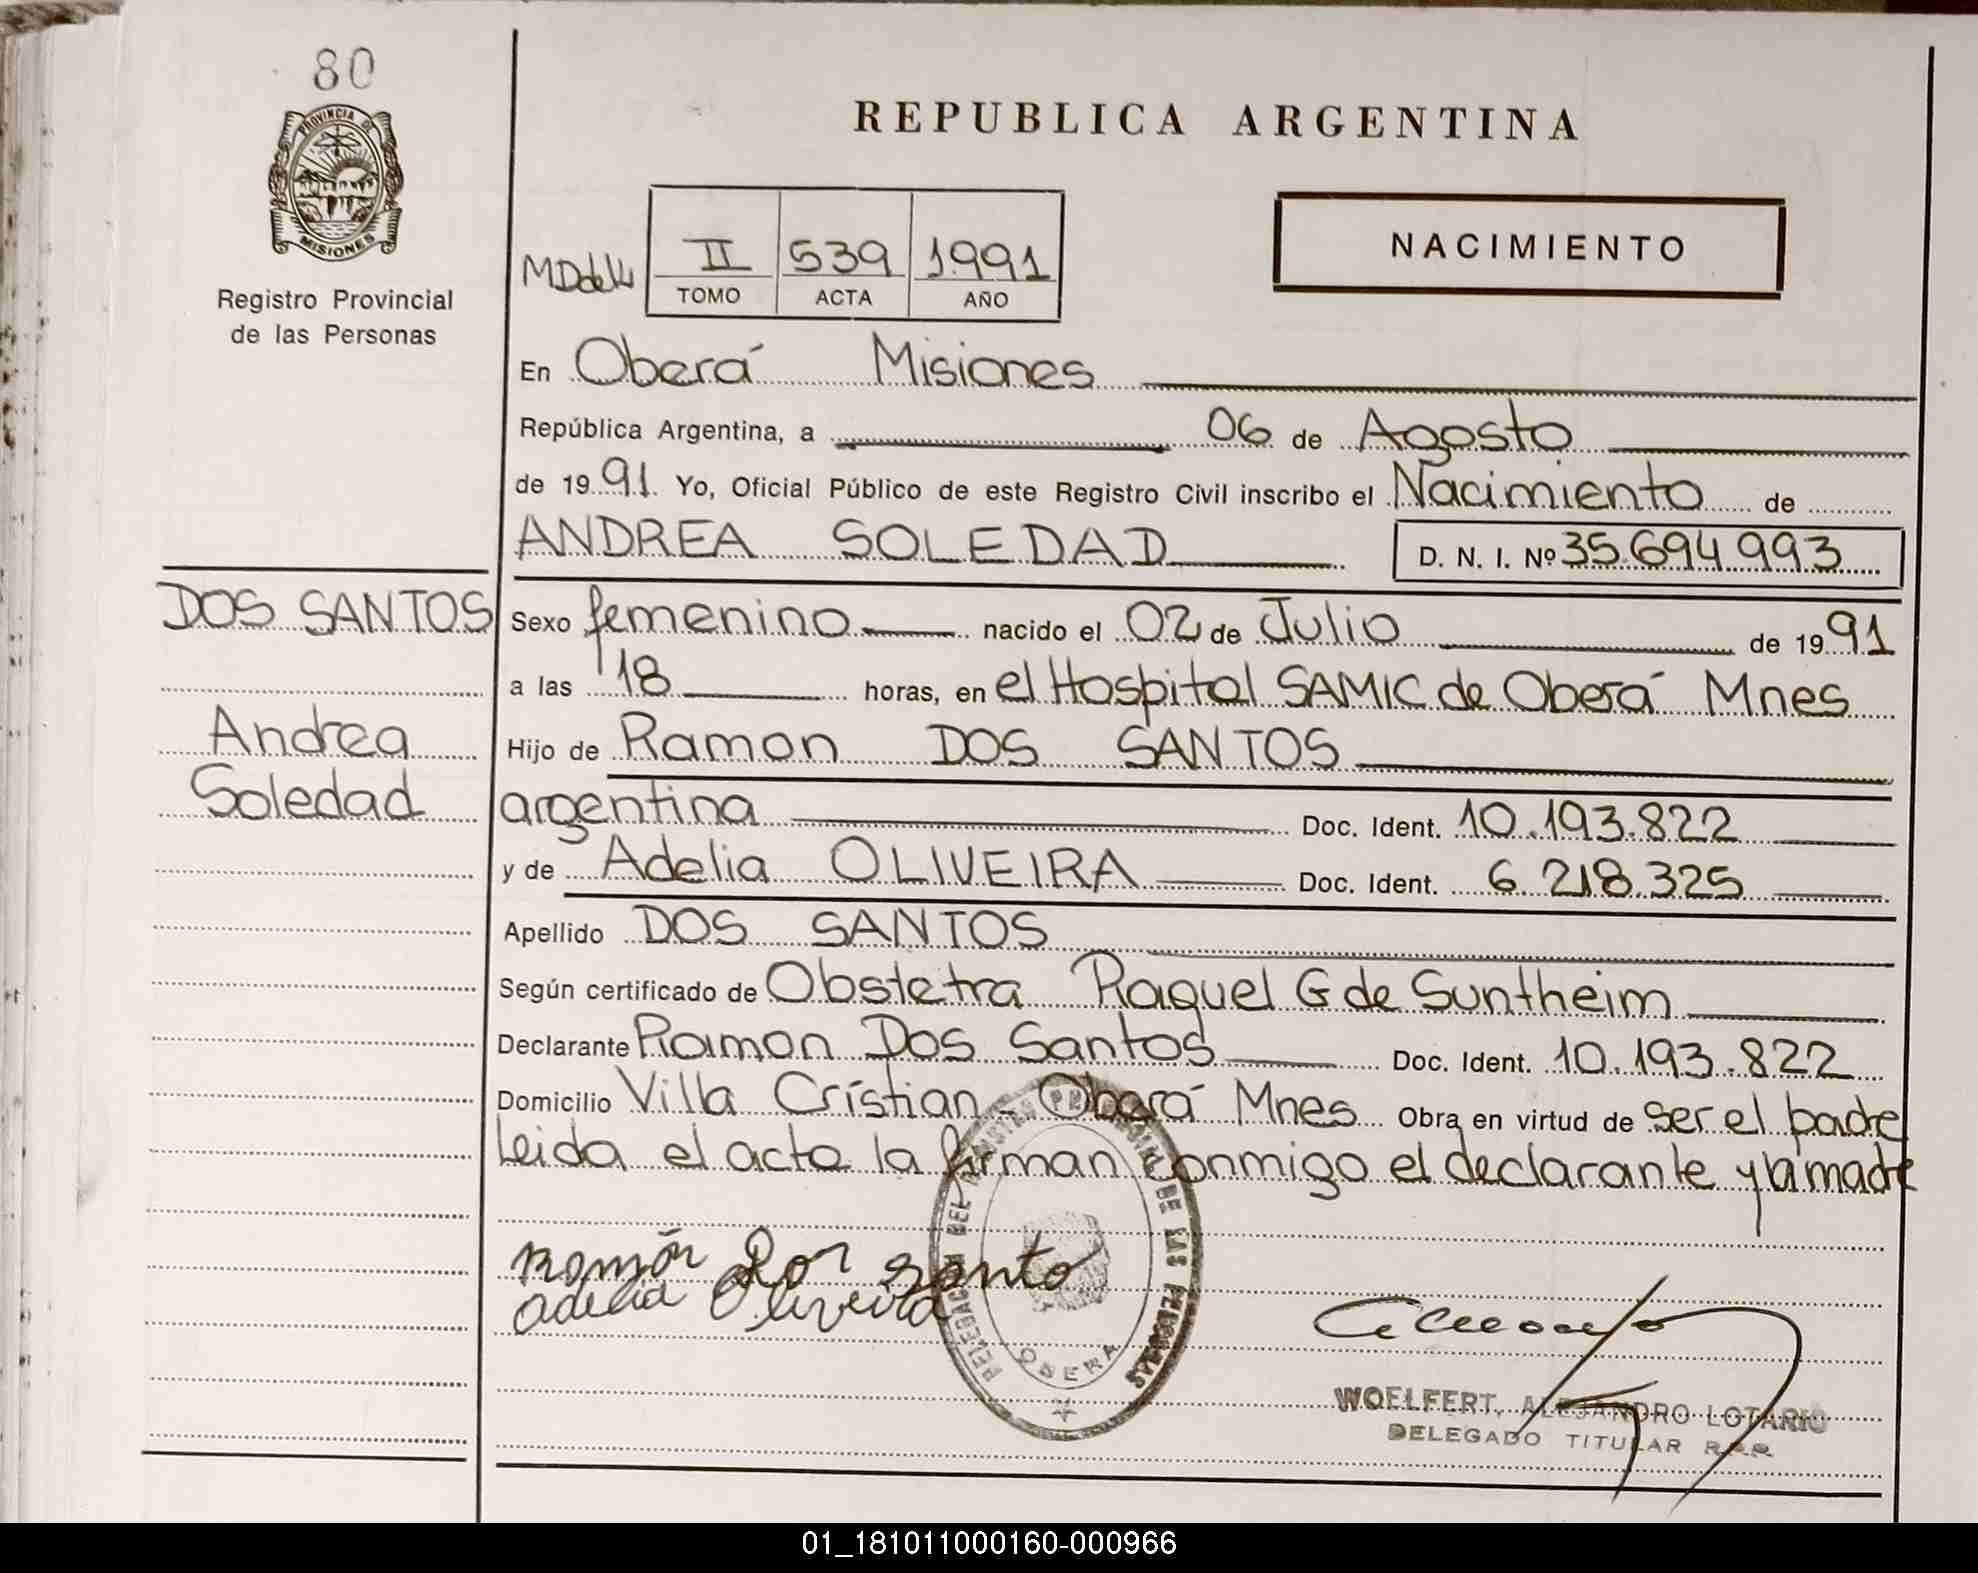 80
PROVINCIA DE
MISIONES
Registro Provincial
de las Personas
REPUBLICA ARGENTINA
II 539 1991
TOMO ACTA AÑO
NACIMIENTO
En Oberá Misiones
República Argentina, a 06 de Agosto
de 1991. Yo, Oficial Público de este Registro Civil inscribo el Nacimiento de
ANDREA SOLEDAD D. N. I. Nº 35.694.993
DOS SANTOS
Andrea
Soledad
Sexo femenino nacido el 02 de Julio de 1991
a las 18 horas, en el Hospital SAMIC de Oberá Mnes
Hijo de Ramon DOS SANTOS
argentina Doc. Ident. 10.193.822
y de Adelia OLIVEIRA Doc. Ident. 6.218.325
Apellido DOS SANTOS
Según certificado de Obstetra Raquel G de Suntheim
Declarante Ramon Dos Santos Doc. Ident. 10.193.822
Domicilio Villa Cristian - Oberá Mnes Obra en virtud de ser el padre
Leida el acta la firman conmigo el declarante y la madre
Ramón Dos Santo
Adelia Oliveira
DELEGACION DEL REGISTRO PROVINCIAL DE LAS PERSONAS
OBERA
WOELFERT, ALEJANDRO LOTARIO
DELEGADO TITULAR R.P.P.
01_181011000160-000966